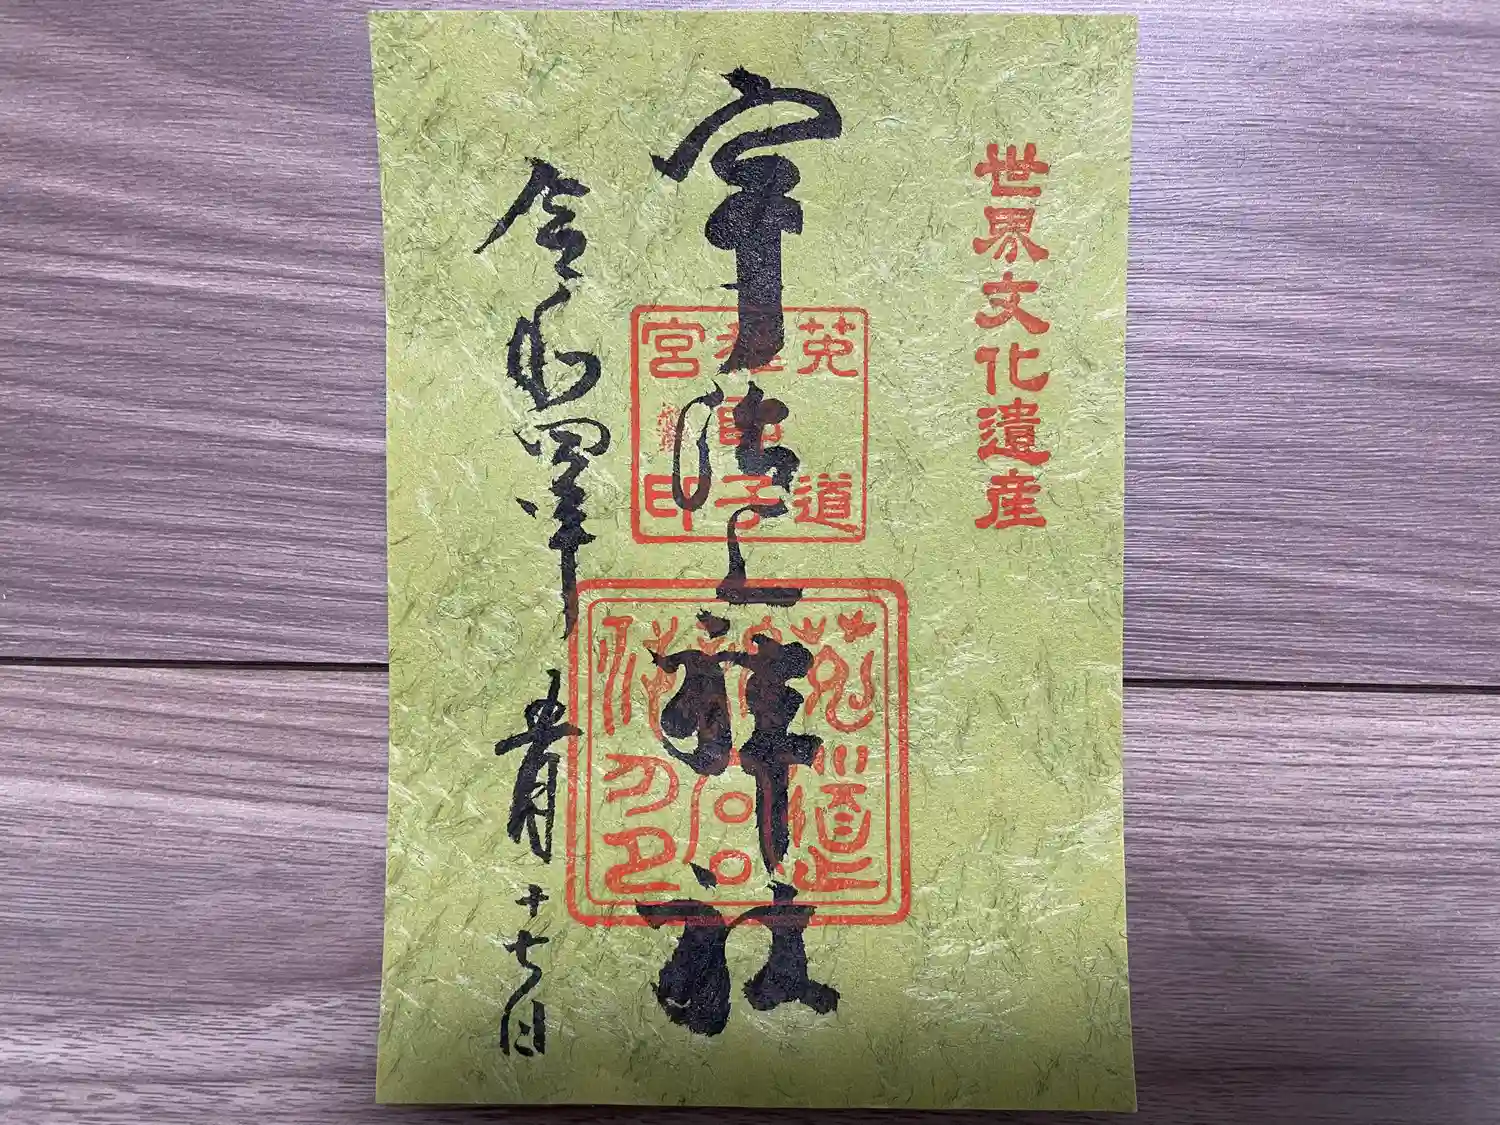 世界文化遺産
宇治上神社
莵道
稚郎子
宮印
莵道
令和四年
十七日